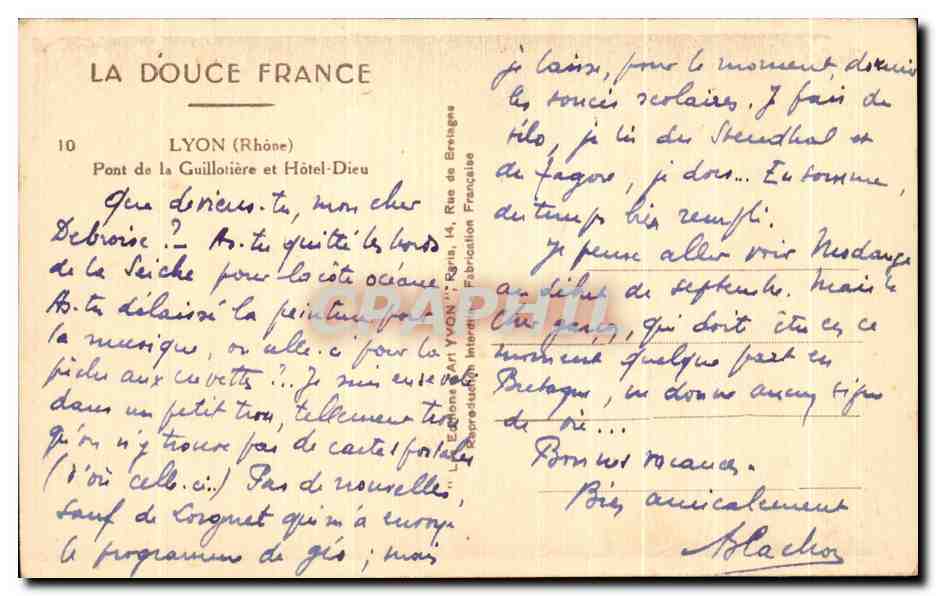 LA DOUCE FRANCE
10 LYON (Rhône)
Pont de la Guillotière et Hôtel-Dieu
Que deviens-tu, mon cher
Debroise ? – As-tu quitté les bords
de la Seiche pour la côte océane
As-tu délaissé la peinture pour
la musique, ou celle-ci pour la
pêche aux crevettes ?... Je suis
dans un petit trou, tellement trou
qu'on n'y trouve pas de cartes postales
(d'où celle-ci..) Pas de nouvelles,
sauf de Lorgnet qui m'a envoyé
le programme de géo ; mais
"LA Editions d'Art YVON", Paris, 14, Rue de Bretagne
Reproduction Interdite Fabrication Française
je laisse, pour le moment, dormir
les soucis scolaires. Je fais du
vélo, je lis du Stendhal et
du Tagore, je dors... En somme,
du temps bien rempli.
Je pense aller voir
au début de septembre. Mais le
cher garçon, qui doit être en ce
moment quelque part en
Bretagne, ne donne aucun signe
de vie...
Bonnes vacances.
Bien amicalement
CPAPHIL